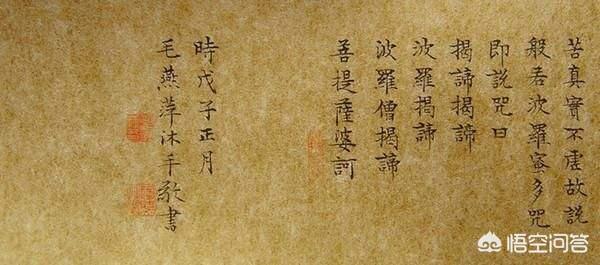 苦真實不虛故說
般若波羅蜜多咒
即說咒曰
揭諦揭諦
波羅揭諦
波羅僧揭諦
菩提薩婆訶
時戊子正月
毛燕萍沐手敬書
悟空问答